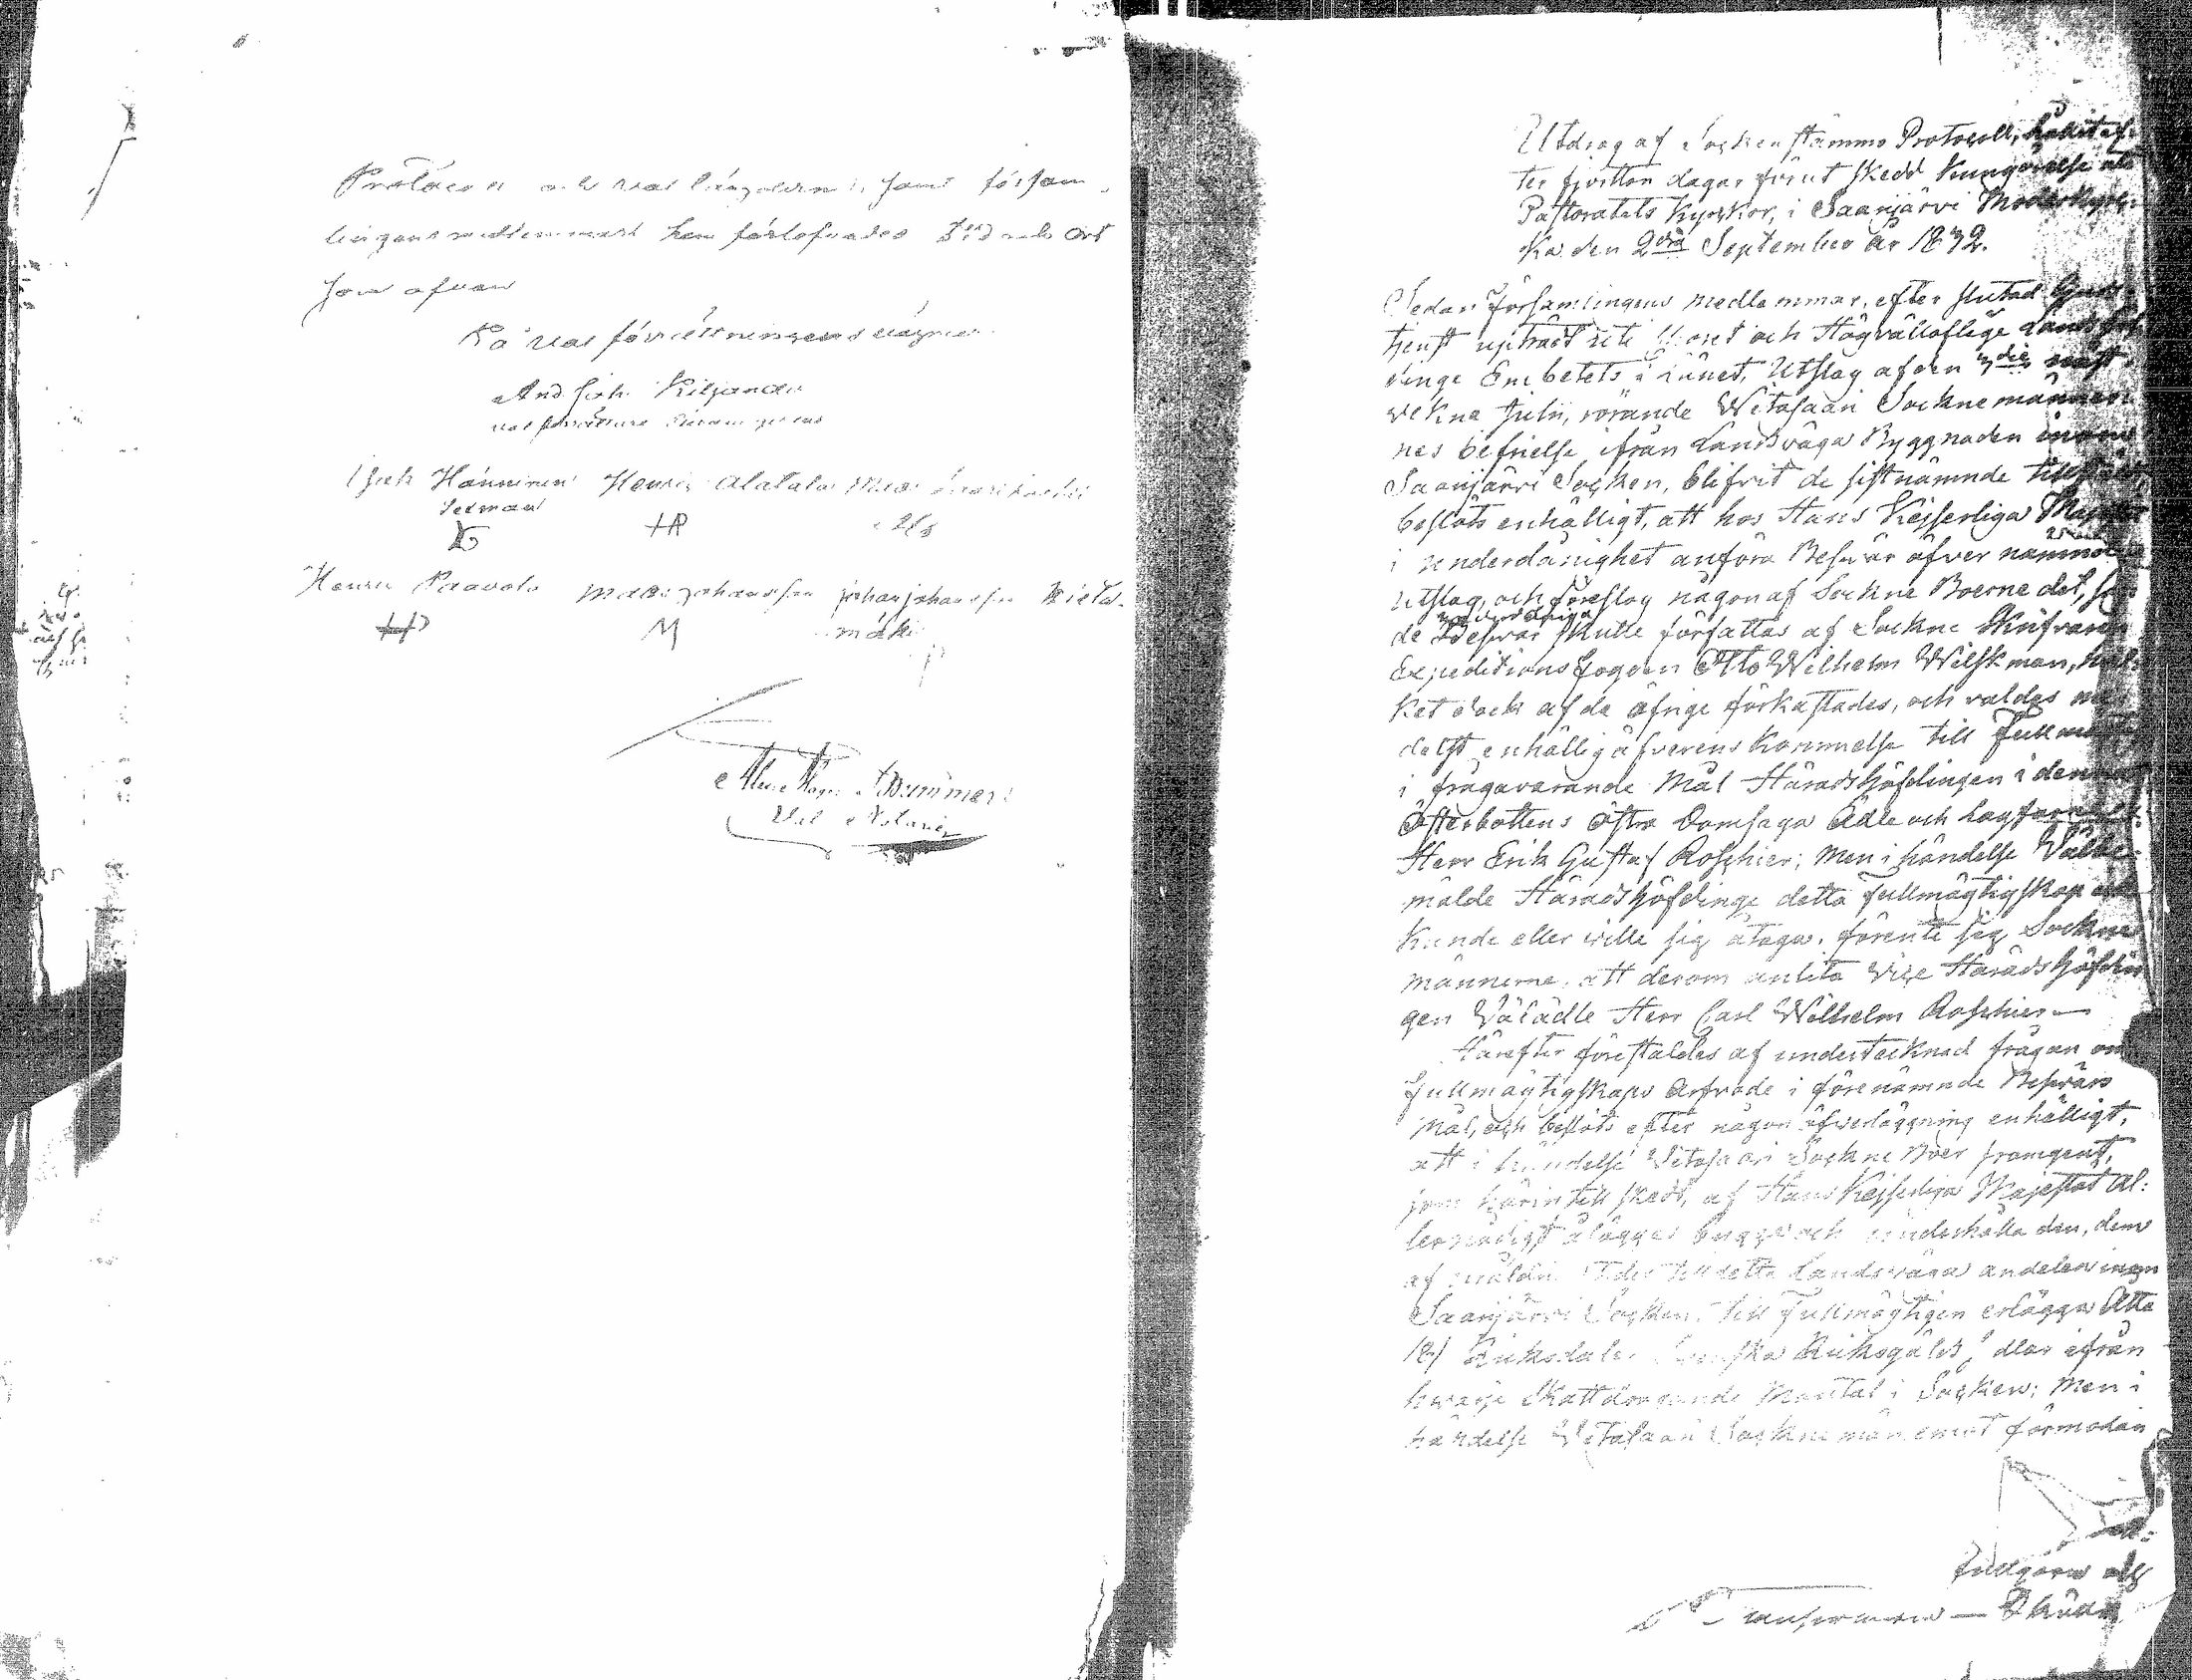 Protocoll och vallängderne, samt församlingens medlemmar hem förlofvades Tid och Ort
som ofvan
På Valförrättningens vägnar
And Joh. Kiljander
Valförrättare
Isak Hänninen Henric Alatalo Mats
Sexman
HP
Henric Paavola Mats Johansson Johan Johansson Kieta-
HP M mäki
Val Notarie
Utdrag af Sockenstämmo Protocoll, hållit ef-
ter fjorton dagar förut skedd kungörelse uti
Pastoratets Kyrkor, i Saarijärvi Moderkyr-
ka den 2dra September år 1832.
Sedan Församlingens medlemmar, efter slutad Guds-
tjenst uptrådt och Högvälloflige Landshöf-
dinge Embetets i länet, Utslag af den 3die näst-
vekne Julii, rörande Witasaari Socknemänner-
nes befrielse ifrån Landsväga Byggnaden inom
Saarijärvi Socken, blifvit de sistnämnde
beslöts enhälligt, att hos Hans Kejserliga Majestät
i underdånighet anföra Besvär öfver nämnde
Utslag, och föreslog någon af Sockne Boerne det,
de underdåniga Besvär skulle författas af Sockne Skrifvaren
Expeditions Fogden Otto Wilhelm Wilskman, hvil-
ket dock af de öfrige förkastades, och valdes me-
delst enhällig öfverenskommelse till Fullmägtig
i frågavarande Mål Häradshöfdingen i den
Österbottens Östra Domsaga Ädle och Lagfarne
Herr Erik Gustaf Roschier; men i händelse Välbe-
mälde Häradshöfdinge detta Fullmägtigskap ej
kunde eller ville sig åtaga, förente sig Sockne
männerne, att derom anlita Vice Häradshöfdin-
gen Välädle Herr Carl Wilhelm Roschier—
Härefter föreställdes af undertecknad frågan om
Fullmägtigskaps Arfvode i förenämnde Besvärs
Mål, och beslöts efter någon öfverläggning enhälligt,
att i händelse Witasaari Sockne Boer framgent,
som härintill skedt, af Hans Kejserliga Majestät Al-
lernådigst ålägges bygga och underhålla den, dem
af till detta Landsväga andelen inom
Saarijärvi Socken, till Fullmägtigen erlägga Åtta
(8) Riksdaler Svenska Riksgälds, ifrån
hvarje Skattdragande Mantal i Socken; Men i
händelse Witasaari Sockne män emot förmodan
fullgöra